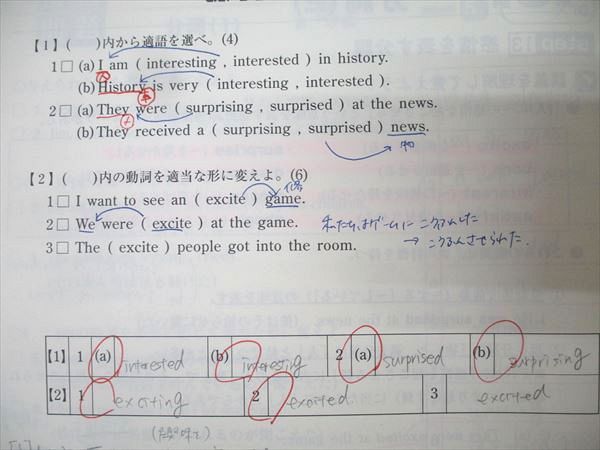 【1】( )内から適語を選べ。(4)
1□ (a) I am ( interesting , interested ) in history.
(b) History is very ( interesting , interested ).
2□ (a) They were ( surprising , surprised ) at the news.
(b) They received a ( surprising , surprised ) news.
【2】( )内の動詞を適当な形に変えよ。(6)
1□ I want to see an ( excite ) game.
2□ We were ( excite ) at the game.
3□ The ( excite ) people got into the room.
私たちはゲームに
【1】 1 (a) interested (b) interesting 2 (a) surprised (b) surprising
【2】 1 exciting 2 excited 3 excited